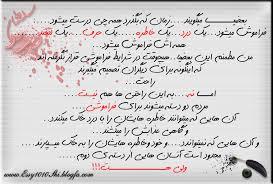 بعضیا میگویند.....زمان که بگذرد همه چی درست میشود...
فراموش میشود...یک درد...یک خاطره...یک حرف...یک
همه اش فراموش میشود...
من مطمئنم این بعضیا هیچوقت در شرایط فراموشی قرار نگرفته اند
که اینگونه برای دیگران تصمیم میگیرند
اما نه...به این راحتی ها هم نیست...
مردم دو دسته میشوند برای فراموشی...
آن هایی که میتوانند خاطره هایشان را با درد خاک میکنند...
و گاهی عذابش را میکشند...
و آن هایی که نمیتوانند...و خود و خاطره هایشان را به خاک میسپارند...
مجبور است آسان هایی از دسته ی دوم...
ولی هست!!!
www.Easy1010.Jhi.blogfa.com